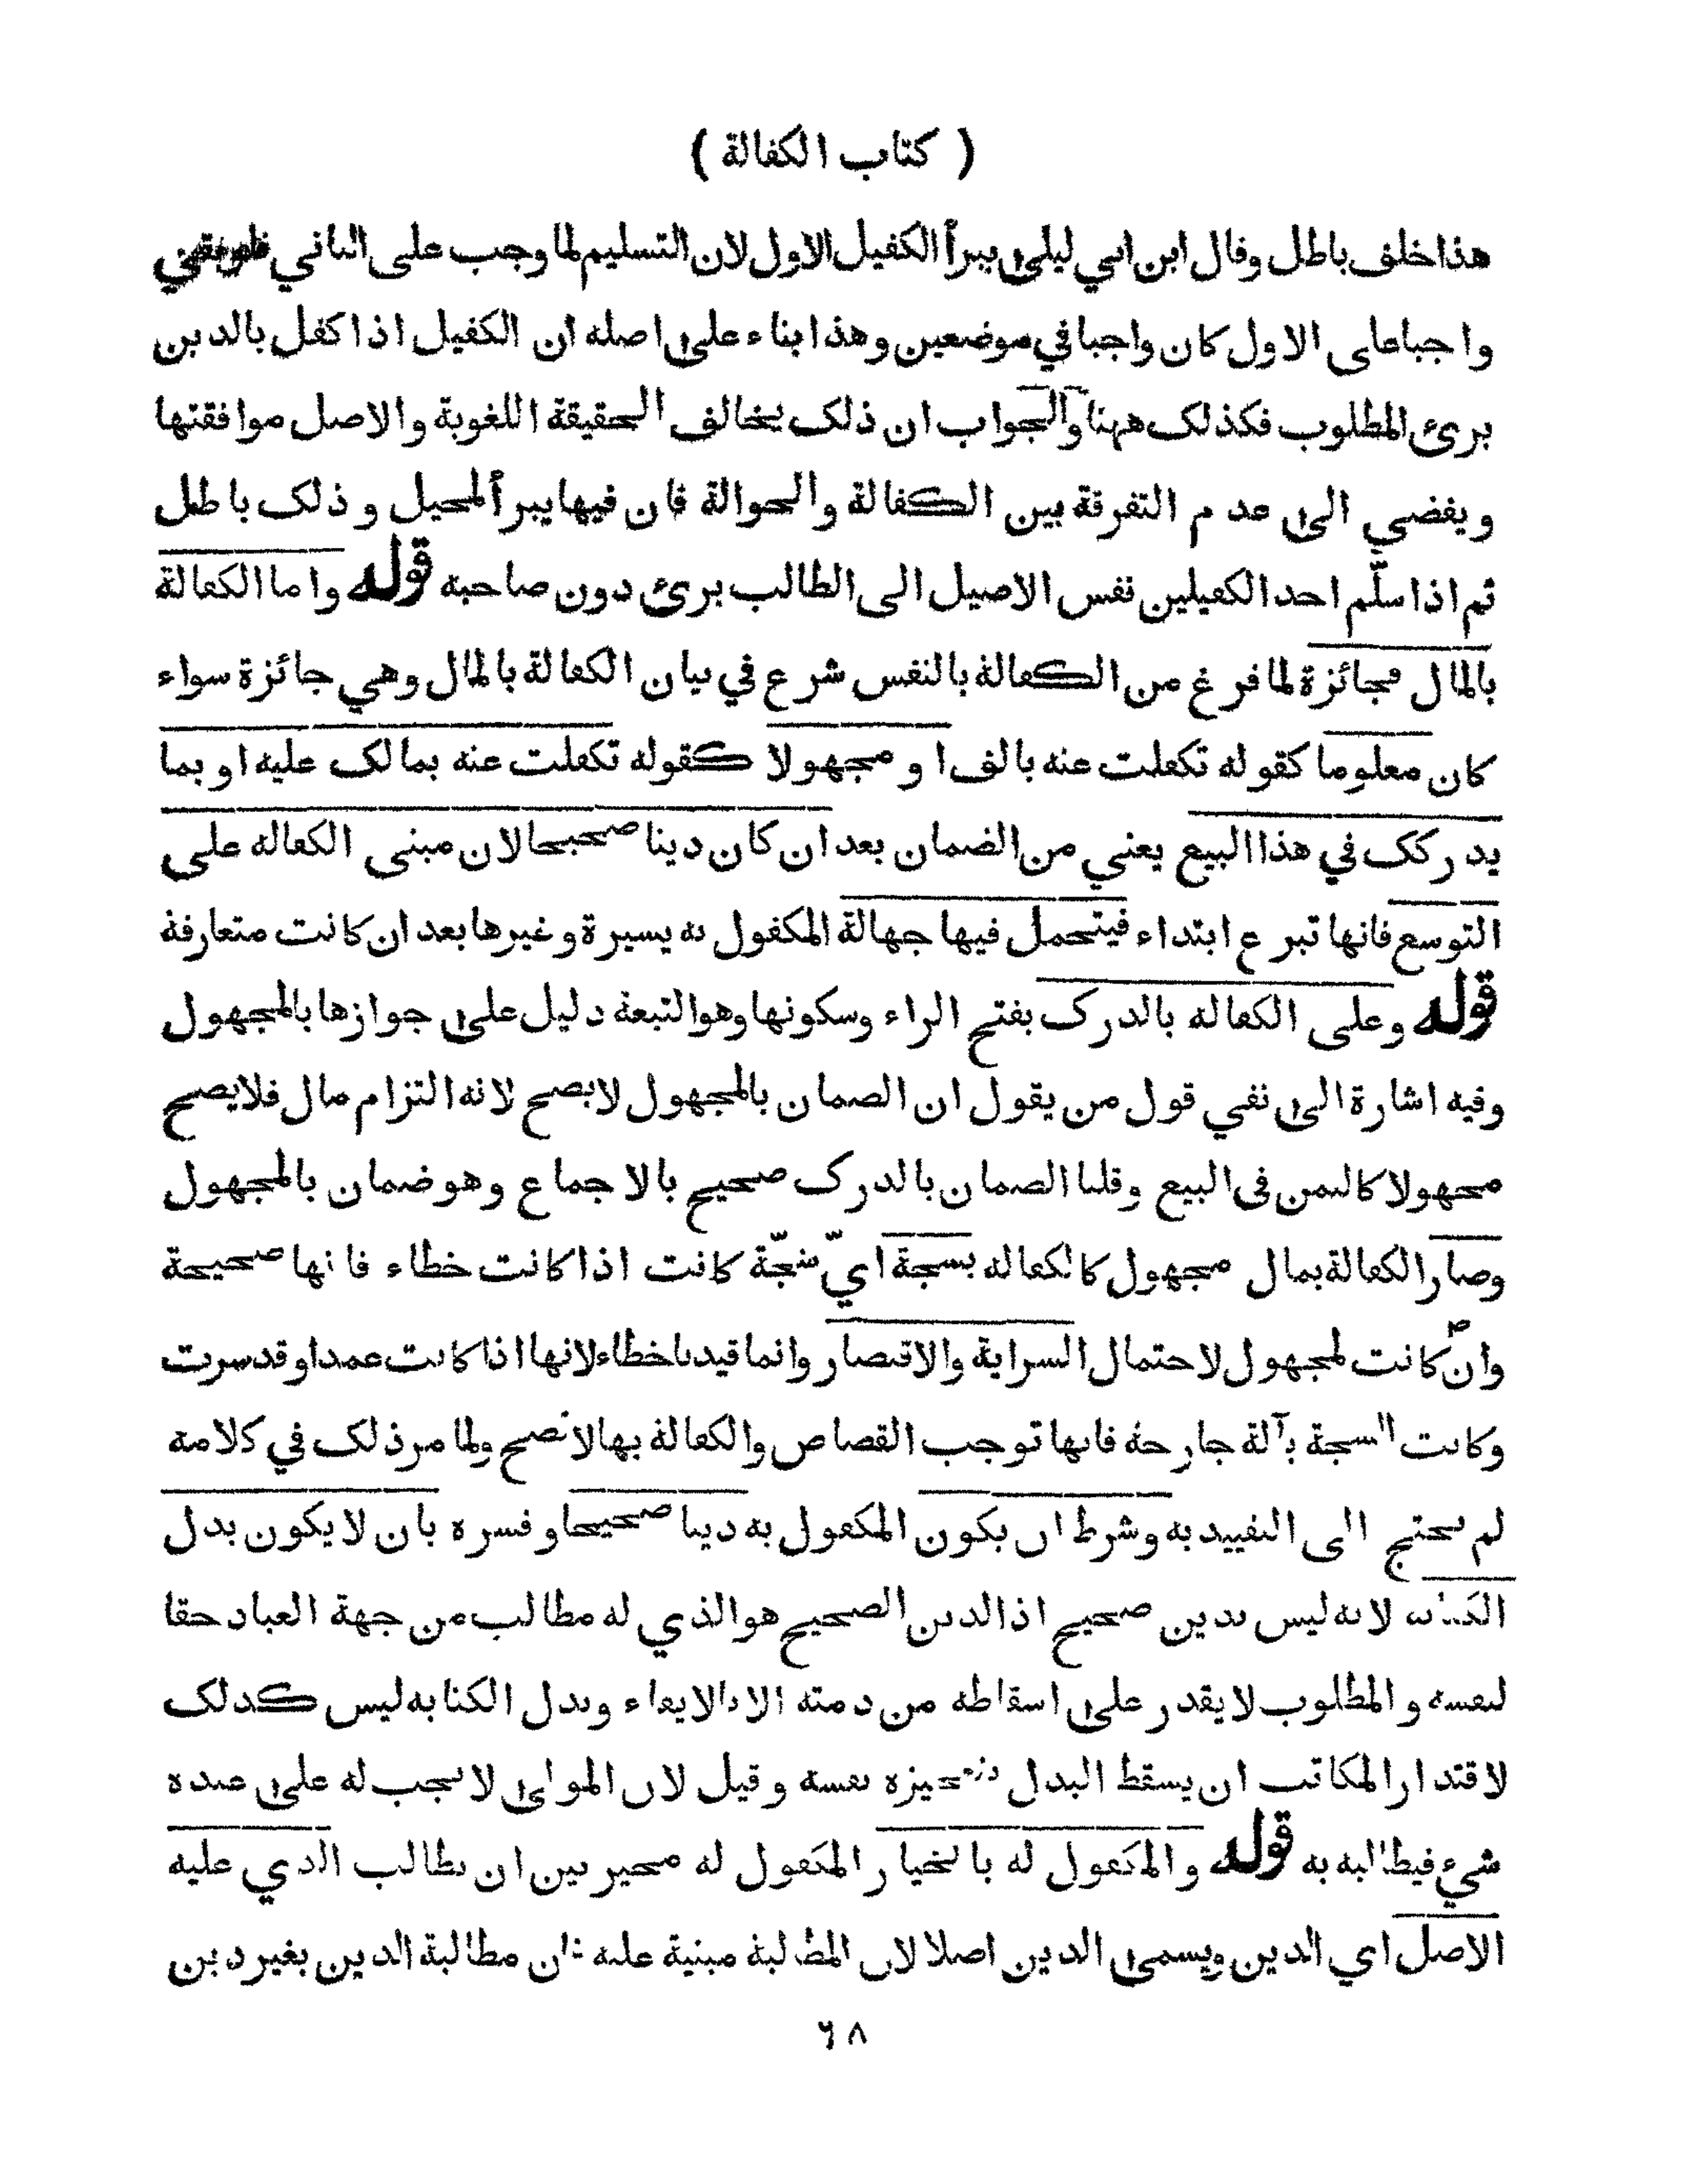 ( كتاب الكفالة )
هذا خلف باطل وقال ابن ابي ليلى يبرأ الكفيل الاول لان التسليم لما وجب على الثاني فلو بقي
واجبا على الاول كان واجبا في موضعين وهذا بناء على اصله ان الكفيل اذا كفل بالدين
برئ المطلوب فكذلك ههنا والجواب ان ذلك يخالف الحقيقة اللغوية والاصل موافقتها
ويفضي الى عدم التفرقة بين الكفالة والحوالة فان فيها يبرأ المحيل و ذلك باطل
ثم اذا سلّم احد الكفيلين نفس الاصيل الى الطالب برئ دون صاحبه قوله واما الكفالة
بالمال فجائزة لما فرغ من الكفالة بالنفس شرع في بيان الكفالة بالمال وهي جائزة سواء
كان معلوما كقوله تكفلت عنه بالف او مجهولا كقوله تكفلت عنه بمالك عليه او بما
يدركك في هذا البيع يعني من الضمان بعد ان كان دينا صحيحا لان مبنى الكفالة على
التوسع فانها تبرع ابتداء فيتحمل فيها جهالة المكفول به يسيرة وغيرها بعد ان كانت متعارفة
قوله وعلى الكفالة بالدرك بفتح الراء وسكونها وهو التبعة دليل على جوازها بالمجهول
وفيه اشارة الى نفي قول من يقول ان الضمان بالمجهول لا يصح لانه التزام مال فلا يصح
مجهولا كالثمن فى البيع وقلنا الضمان بالدرك صحيح بالاجماع وهو ضمان بالمجهول
وصار الكفالة بمال مجهول كالكفالة بشجة ايّ شجّة كانت اذا كانت خطاء فانها صحيحة
وان كانت لمجهول لاحتمال السراية والاقتصار وانما قيدنا خطاء لانها اذا كانت عمدا وقد سرت
وكانت الشجة بآلة جارحة فانها توجب القصاص والكفالة بها لا تصح ولما مر ذلك في كلامه
لم يحتج الى التقييد به وشرط ان يكون المكفول به دينا صحيحا وفسره بان لا يكون بدل
الكتابة لانه ليس بدين صحيح اذ الدين الصحيح هو الذي له مطالب من جهة العباد حقا
لنفسه و المطلوب لا يقدر على اسقاطه من ذمته الا بالايفاء وبدل الكتابة ليس كذلك
لاقتدار المكاتب ان يسقط البدل بتعجيزه نفسه وقيل لان المولى لا يجب له على عبده
شيء فيطالبه به قوله والمكفول له بالخيار المكفول له مخير بين ان يطالب الذي عليه
الاصل اي الدين ويسمى الدين اصلا لان المطالبة مبنية عليه فان مطالبة الدين بغير دين
٦٨